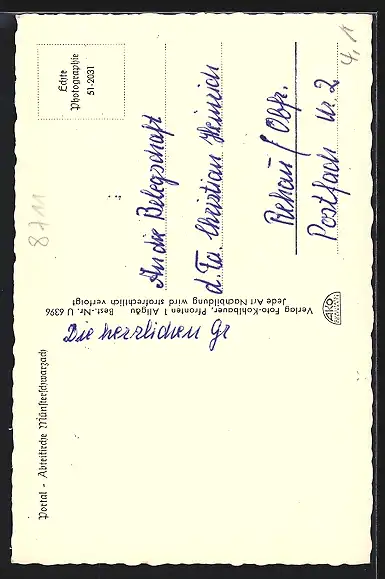 Portal - Abteikirche Münsterschwarzach
Die herrlichen Gr
Verlag Foto-Kohlbauer, Pfronten 1 Allgäu Best.-Nr. U 6396
Jede Art Nachbildung wird strafrechtlich verfolgt
AKO
Echte
Photographie
51-2031
An die Belegschaft
d. Fa. Christian Heinrich
Rehau / Obfr.
Postfach Nr. 2
8711
4,1